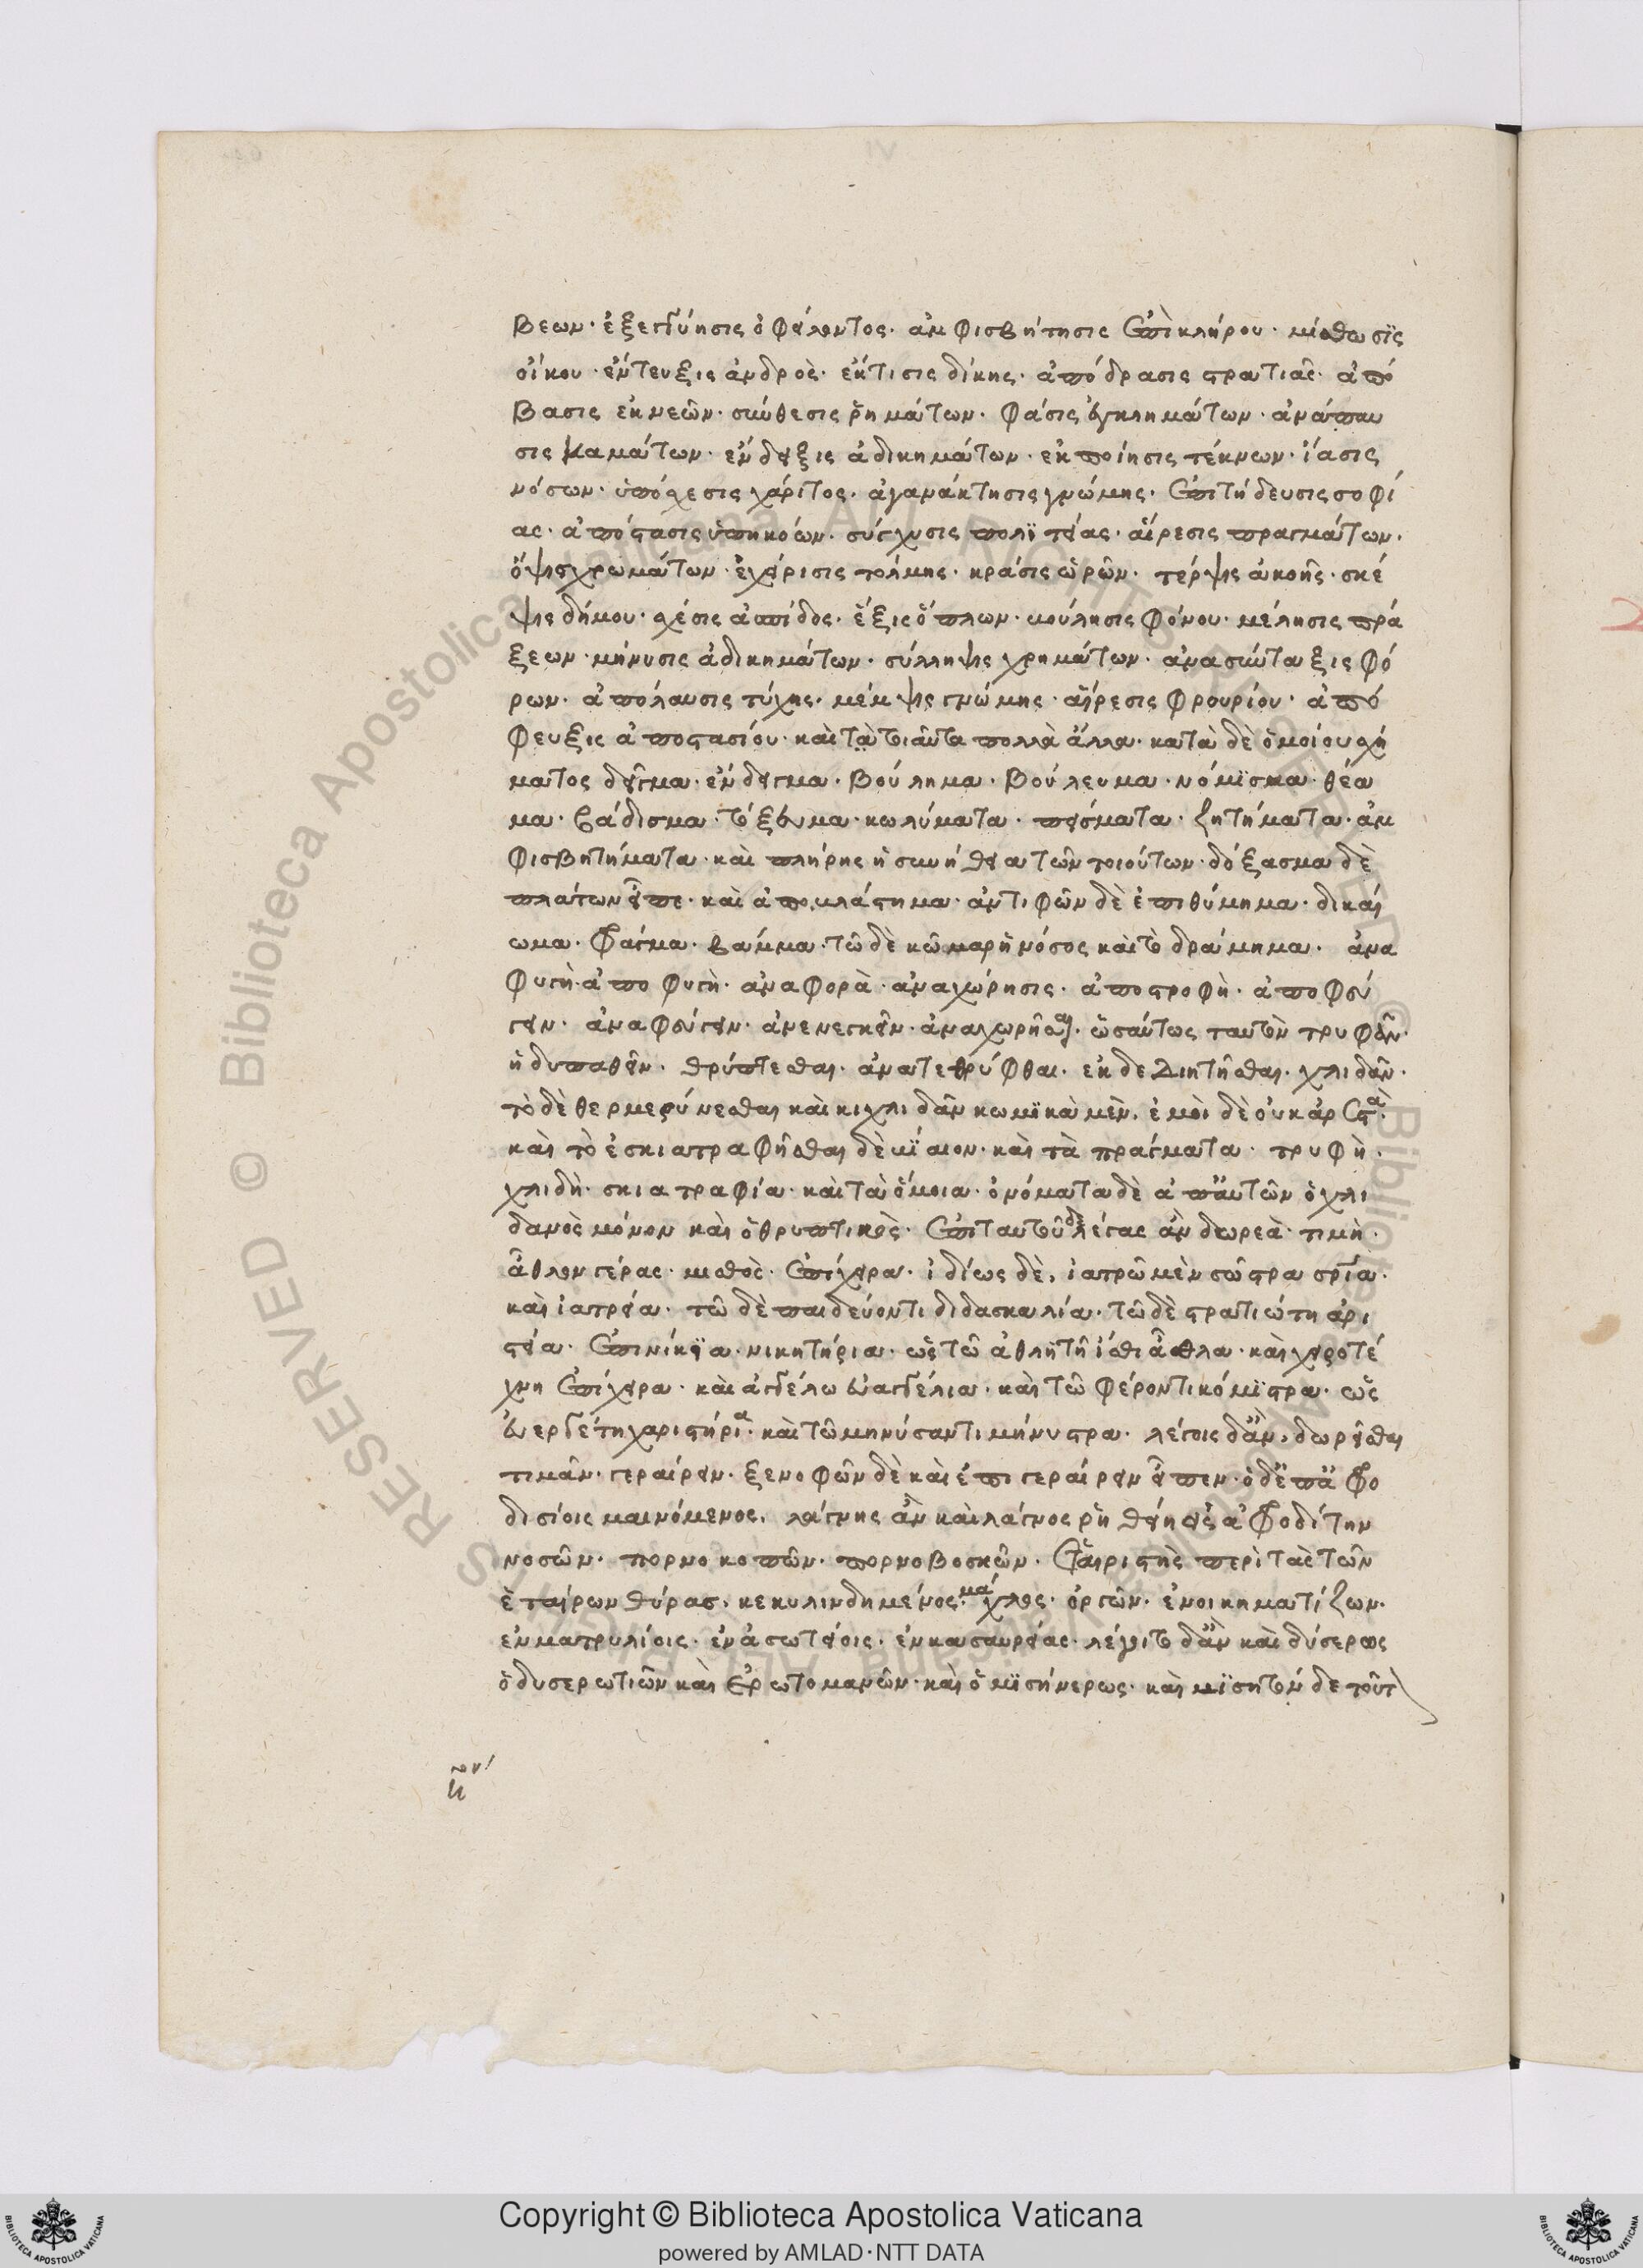 βεων· ἐξεγγύησις ὀφείλοντος· ἀμφισβήτησις ἐπικλήρου· μίσθωσϊς
οἴκου· ἔντευξις ἀνδρὸς· ἔκτισις δίκης· ἀπόδρασις στρατιᾶς· ἀπό
βασις ἐκ νεῶν· σύνθεσις ῥημάτων· φάσις ἐγκλημάτων· ἀνάπαυ
σις καμάτων· ἔνδειξις ἀδικημάτων· ἐκποίησις τέκνων· ἴασις
νόσων· ὑπόσχεσις χάριτος· ἀγανάκτησις γνώμης· ἐπιτήδευσις σοφί
ας· ἀπόστασις ὑπηκόων· σύγχυσις πολϊτείας· αἵρεσις πραγμάτων·
ὄψις χρωμάτων· ἐγχείρισις τόλμης· κρᾶσις ὡρῶν· τέρψις ἀκοῆς· σκέ
ψις δήμου· σχέσις ἀσπίδος· ἕξις ὅπλων· φόνου· μέλησις πρά
ξεων· μήνυσις ἀδικημάτων· σύλληψις χρημάτων· ἀνασύνταξις φό
ρων· ἀπόλαυσις τύχης· μέμψις γνώμης· αἵρεσις φρουρίου· ἀπό
φευξις ἀποστασίου· καὶ τὰ τοιαῦτα πολλὰ ἄλλα· κατὰ δὲ ὁμοίου σχή
ματος δεῖγμα· ἔνδειγμα· βούλημα· βούλευμα· νόμϊσμα· θέα
μα· βάδισμα· τόξευμα· κωλύματα· πείσματα· ζητήματα· ἀμ
φισβητήματα· καὶ πλήρης ἡ συνήθεια τῶν τοιούτων· δόξασμα δὲ
πλάτων εἶπε· καὶ ἀποκλάστημα· ἀντιφῶν δὲ ἐπιθύμημα· δικαί
ωμα· φάσμα· βάμμα· τῶ δὲ κῶμα ρῆ νόσος καὶ τὸ δράμημα· ἀνα
φυγὴ· ἀποφυγὴ· ἀναφορὰ· ἀναχώρησις· ἀποστροφὴ· ἀποφεύ
γειν· ἀναφεύγειν· ἀνενεγκεῖν· ἀναχωρῆσαι· ὡσαύτως ταυτὸν τρυφᾶν·
ἡδυπαθεῖν· θρύπτεσθαι· ἀνατεθρύφθαι· ἐκδεδιητῆσθαι· χλιδᾶν·
τὸ δὲ θερμερύνεσθαι καὶ κιχλιδᾶν κωμϊκὰ μὲν, ἐμοὶ δὲ οὐκ ἀρεστὰ·
καὶ τὸ ἐσκιατραφῆσθαι δὲ βΐαιον· καὶ τὰ πράγματα· τρυφὴ·
χλιδὴ· σκιατραφία· καὶ τὰ ὅμοια· ὀνόματα δὲ ἀπ' αὐτῶν ὁ χλι
δανὸς μόνον καὶ ὁ θρυπτικὸς· ἐπὶ ταυτοῦ δὲ λέγοις ἂν δωρεὰ· τιμὴ·
ἆθλον γέρας· μισθὸς· ἐπίχειρα· ἰδίως δὲ, ἰατρῶ μὲν σῶστρα σρῖα·
καὶ ἰατρεῖα· τῶ δὲ παιδεύοντι διδασκαλία· τῶ δὲ στρατιώτη ἀρι
στεῖα· ἐπινίκεια· νικητήρια· ὡς τῶ ἀθλητῆ ἰσθι ἆθλα· καὶ χειροτέ
χνη ἐπίχειρα· καὶ ἀγγέλω εὐαγγέλια· καὶ τῶ φέροντι κόμϊστρα· ὡς
εὐεργέτη χαριστήρια· καὶ τῶ μηνύσαντι μήνυστρα· λέγοις δ' ἂν, δωρεῖσθαι
τιμᾶν· γεραίρειν· ξενοφῶν δὲ καὶ ἐπιγεραίρειν εἶπεν· ὁ δ' ἐπ' ἀφρο
δισίοις μαινόμενος, λάγνης ἂν καὶ λάγνος ρηθείη εἰς ἀφροδίτην
νοσῶν· πορνοκοπῶν· πορνοβοσκῶν· ἑταιριστὴς περὶ τὰς τῶν
ἑταίρων θύρας, κεκυλινδημένος· μάχλος· ὀργῶν· ἐνοικηματίζων·
ἐν ματρυλίοις· ἐν ἀσωτείοις· ἐν κασαυρείας· λέγοιτο δ' ἂν καὶ δύσερως
ὁ δυσερωτιῶν καὶ ἐρωτομανῶν· καὶ ὁ μϊσήνερως· καὶ μϊσητὴν δε τοῦτ
Copyright © Biblioteca Apostolica Vaticana
powered by AMLAD·NTT DATA